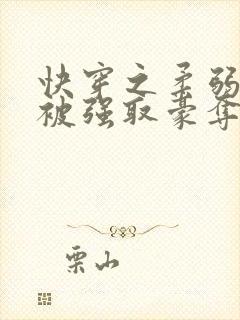 快穿之柔弱
被强取豪夺
栗山